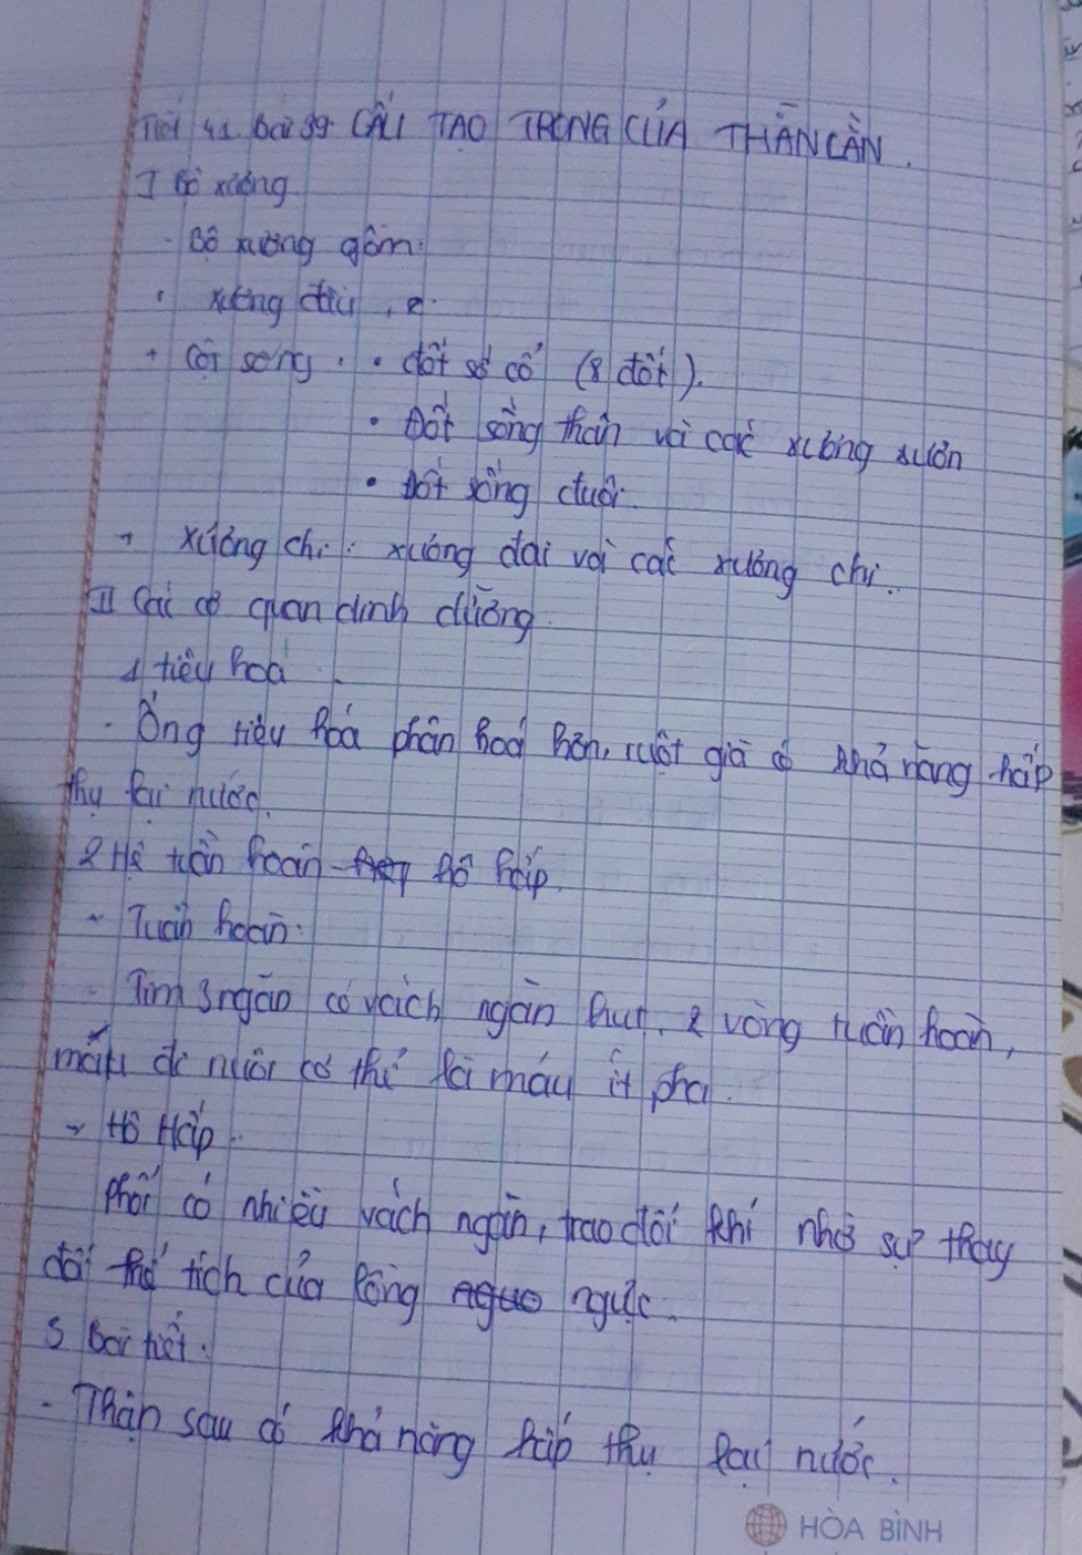 Tiết 41 bài 39 CẤU TẠO TRONG CỦA THẰN LẰN.
I Bộ xương
- Bộ xương gồm:
+ xương đầu
+ Cột sống: • đốt số cổ (8 đốt).
• Đốt sống thân với các xương sườn
• Đốt sống đuôi.
+ Xương chi: xương đai với các xương chi.
II Các cơ quan dinh dưỡng.
1 tiêu hoá
- Ống tiêu hóa phân hoá hơn, ruột già có khả năng hấp
thụ lại nước.
2 Hệ tuần hoàn hô hấp.
- Tuần hoàn:
- Tim 3 ngăn có vách ngăn hụt, 2 vòng tuần hoàn,
máu đi nuôi cơ thể là máu ít pha.
- Hô Hấp.
Phổi có nhiều vách ngăn, trao đổi khí nhờ sự thay
đổi thể tích của lồng ngực.
3 Bài tiết.
- Thận sau có khả năng hấp thụ lại nước.
HÒA BÌNH